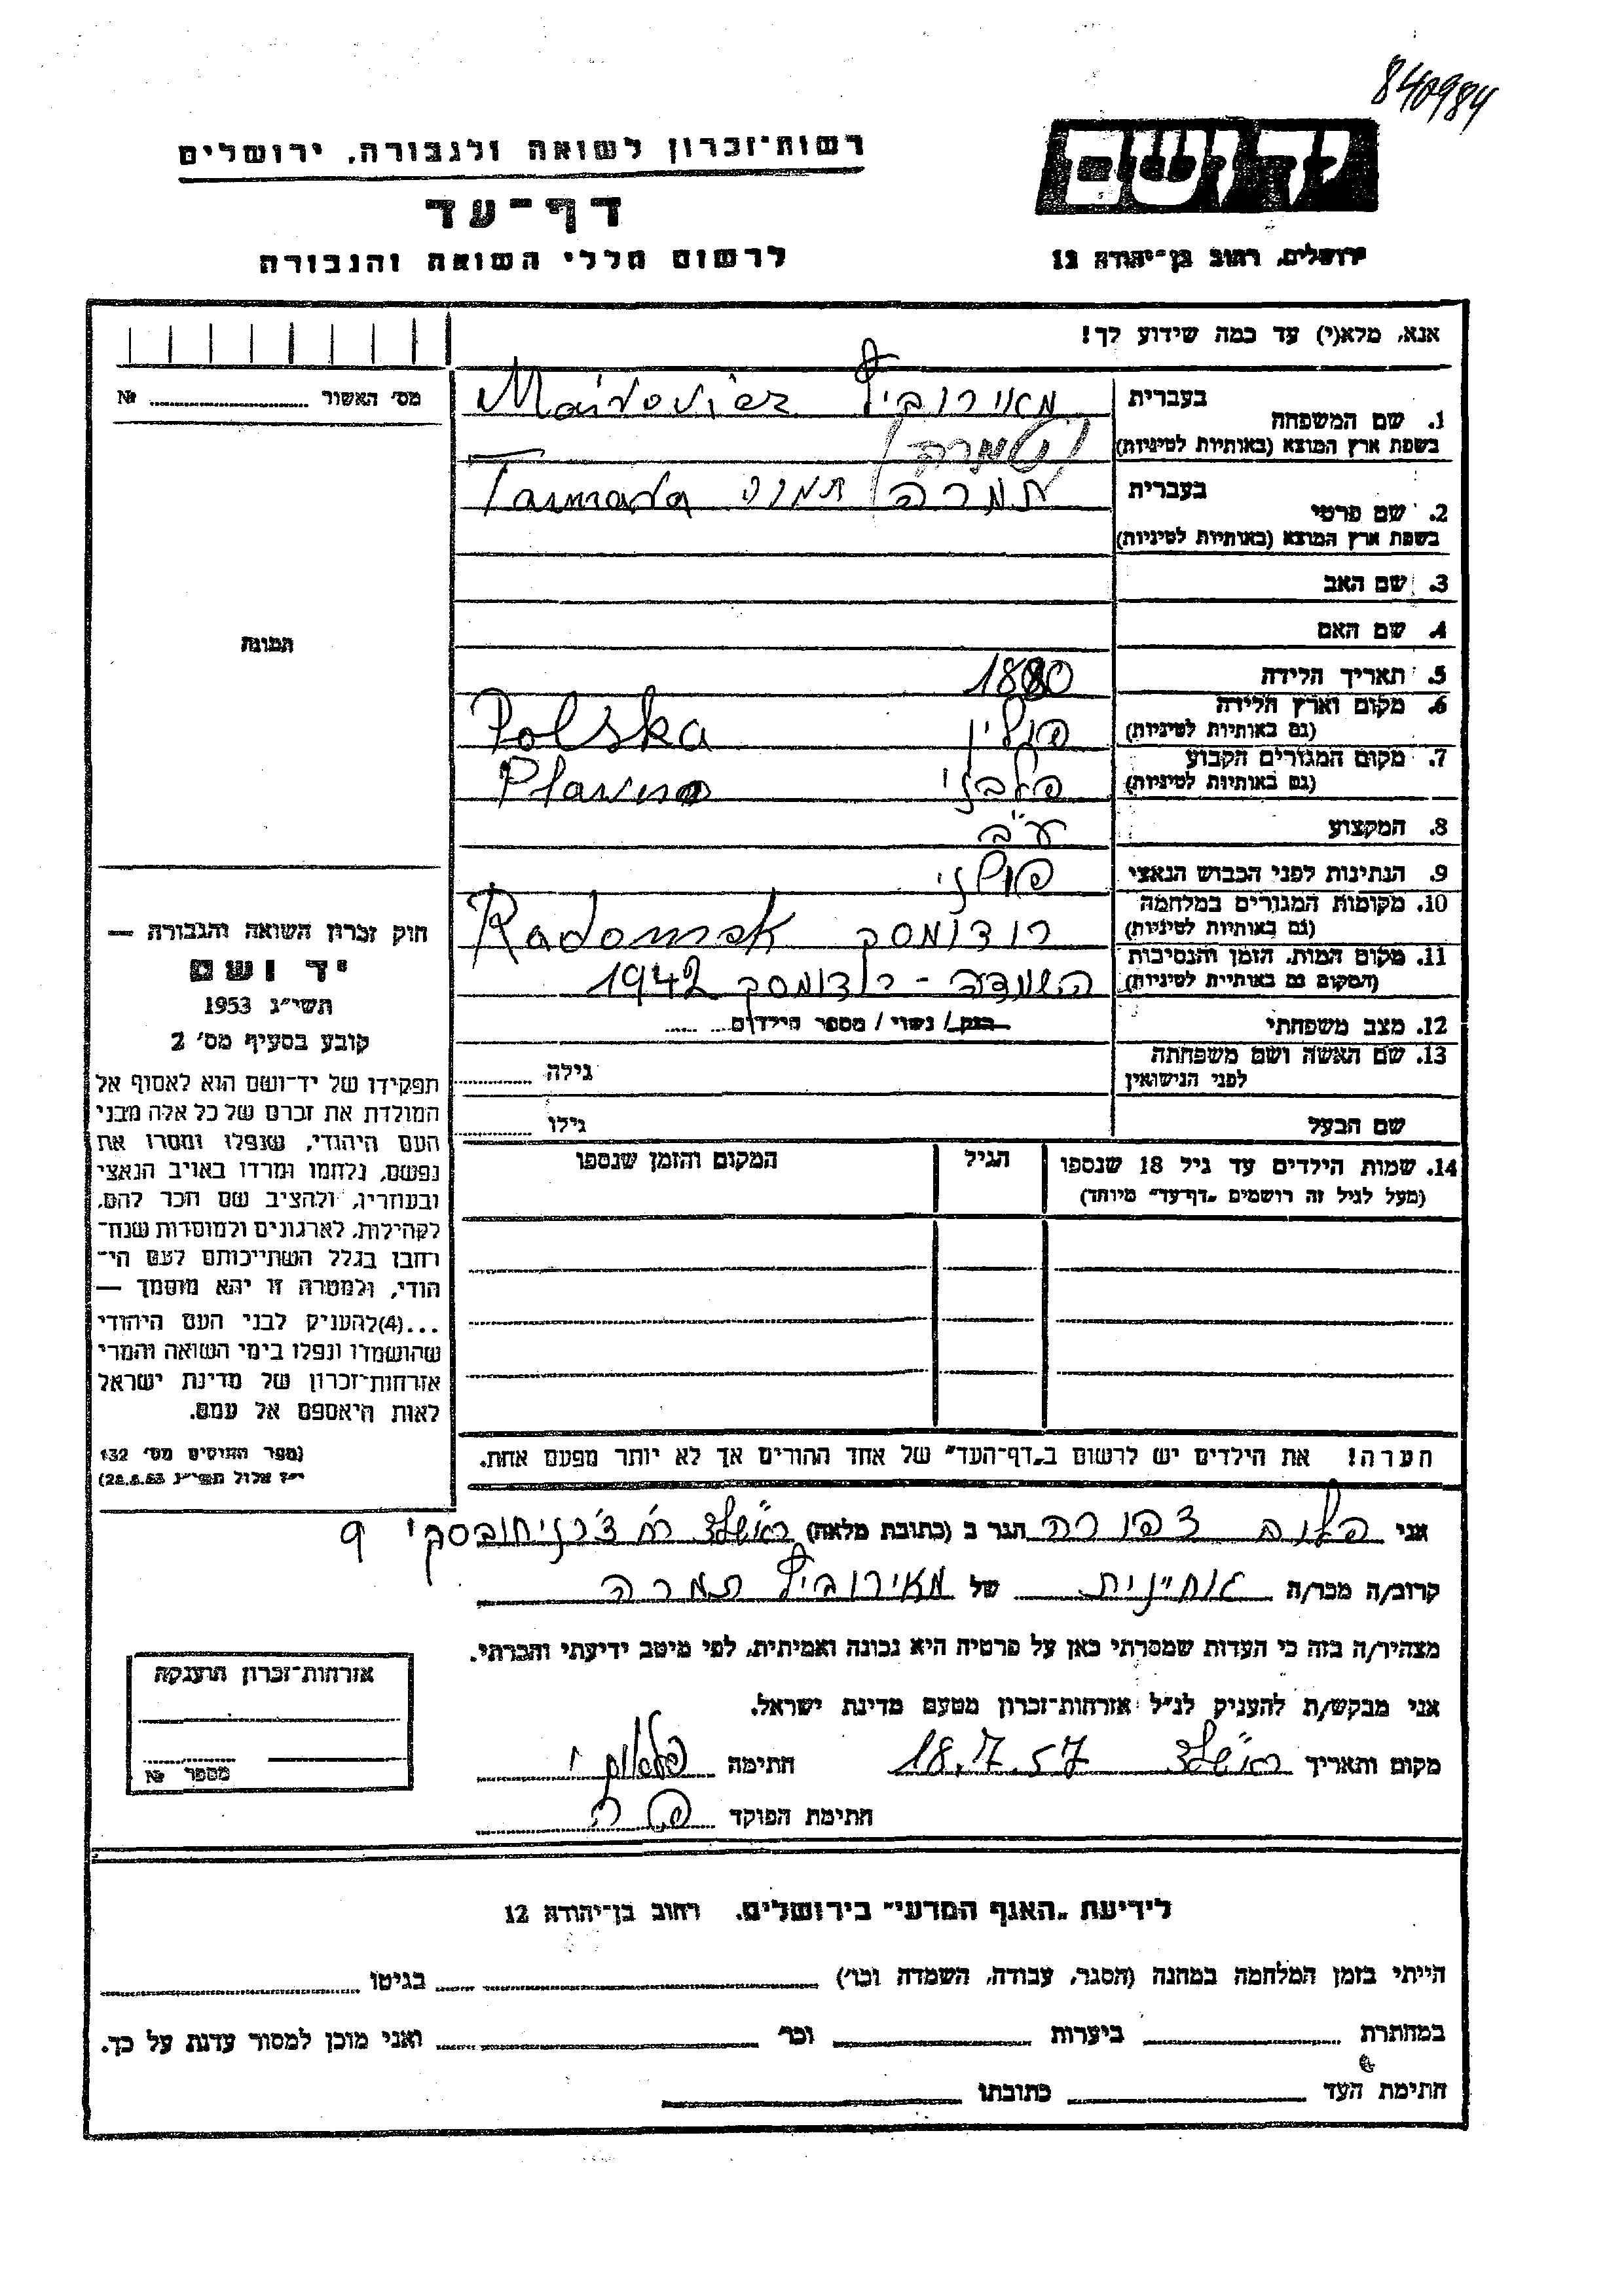 840984
יד ושם
רשות־זכרון לשואה ולגבורה, ירושלים
דף־עד
לרשום חללי השואה והגבורה
ירושלים, רחוב בן־יהודה 12
אנא, מלא(י) עד כמה שידוע לך!
מס׳ האשור № 
1. שם המשפחה בעברית מאירוביץ Mairovicz
בשפת ארץ המוצא (באותיות לטיניות)
2. שם פרטי בעברית תמרה Tamara
בשפת ארץ המוצא (באותיות לטיניות)
3. שם האב
4. שם האם
5. תאריך הלידה 1880
6. מקום וארץ הלידה פולין Polska
(גם באותיות לטיניות)
7. מקום המגורים הקבוע פלבני
(גם באותיות לטיניות)
8. המקצוע ע"ב
9. הנתינות לפני הכבוש הנאצי פולני
10. מקומות המגורים במלחמה רודומסק Radomsk
(גם באותיות לטיניות)
11. מקום המות, הזמן והנסיבות השמדה - רדומסק 1942
(המקום גם באותיות לטיניות)
12. מצב משפחתי רווק/ נשוי/ מספר הילדים
13. שם האשה ושם משפחתה גילה
לפני הנישואין
שם הבעל גילו
14. שמות הילדים עד גיל 18 שנספו הגיל המקום והזמן שנספו
(מעל לגיל זה רושמים „דף־עד” מיוחד)
הערה! את הילדים יש לרשום ב„דף־העד” של אחד ההורים אך לא יותר מפעם אחת.
תמונה
חוק זכרון השואה והגבורה —
יד ושם
תשי״ג 1953
קובע בסעיף מס׳ 2
תפקידו של יד־ושם הוא לאסוף אל
המולדת את זכרם של כל אלה מבני
העם היהודי, שנפלו ומסרו את
נפשם, נלחמו ומרדו באויב הנאצי
ובעוזריו, ולהציב שם וזכר להם,
לקהילות, לארגונים ולמוסדות שנח־
רבו בגלל השתייכותם לעם הי־
הודי, ולמטרה זו יהא מוסמך —
...(4)להעניק לבני העם היהודי
שהושמדו ונפלו בימי השואה והמרי
אזרחות־זכרון של מדינת ישראל
לאות היאספם אל עמם.
(ספר החוקים מס׳ 132
י״ז אלול תשי״ג 28.8.53)
אני פלום צפורה הגר ב (כתובת מלאה) ראשל"צ רח' צ'רניחובסקי 9
קרוב/ה מכר/ה אחינית של מאירוביץ תמרה
מצהיר/ה בזה כי העדות שמסרתי כאן על פרטיה היא נכונה ואמיתית, לפי מיטב ידיעתי והכרתי.
אני מבקש/ת להעניק לנ״ל אזרחות־זכרון מטעם מדינת ישראל.
מקום ותאריך ראשל"צ 18.7.57 חתימה
חתימת הפוקד
אזרחות־זכרון הוענקה
מספר №
לידיעת „האגף המדעי” בירושלים. רחוב בן־יהודה 12
הייתי בזמן המלחמה במחנה (הסגר, עבודה, השמדה וכו׳) בגיטו
במחתרת ביערות וכו׳ ואני מוכן למסור עדות על כך.
חתימת העד כתובתו